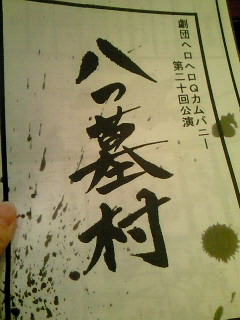 劇団ヘロヘロQカムパニー
第二十回公演
八つ墓村